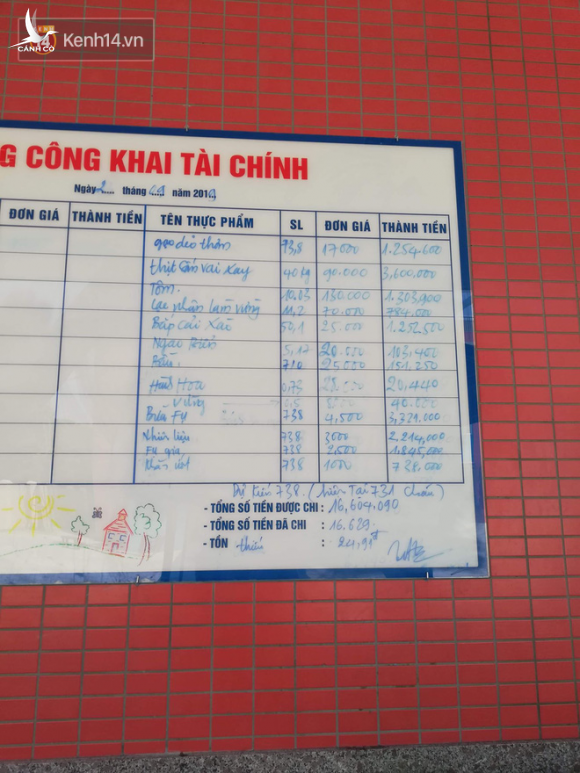 CÁNH CÒ
Kenh14.vn
G CÔNG KHAI TÀI CHÍNH
Ngày 2 tháng năm 2019
ĐƠN GIÁ THÀNH TIỀN TÊN THỰC PHẨM SL ĐƠN GIÁ THÀNH TIỀN
gạo dẻo thơm 73,8 17.000 1.254.600
thịt vai xay 40kg 90.000 3,600.000
Tôm. 10,03 130.000 1.303,900
Lạc nhân 11,2 70.000 784.000
Bắp cải xào 50,1 25.000 1.252,500
5,17 20.000 103,400
7,10 25.000
Hành Hoa 0,73 28.000 20,440
Vừng
Bữa 738 4,500 3,321.000
Nhiên liệu 738 3000 2,214,000
738 2,500 1,845,000
738 1000 738,000
Dự kiến 738. (hiện tại 731 cháu)
- TỔNG SỐ TIỀN ĐƯỢC CHI : 16,604,090
- TỔNG SỐ TIỀN ĐÃ CHI : 16.629
- TỒN :